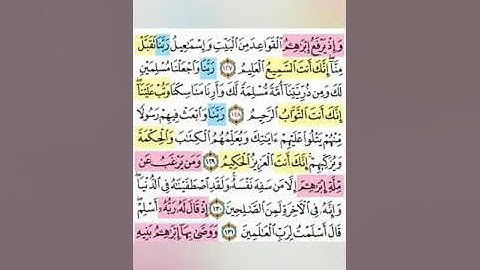 وَإِذْ يَرْفَعُ إِبْرَٰهِـۧمُ ٱلْقَوَاعِدَ مِنَ ٱلْبَيْتِ وَإِسْمَٰعِيلُ رَبَّنَا تَقَبَّلْ
مِنَّآ ۖ إِنَّكَ أَنتَ ٱلسَّمِيعُ ٱلْعَلِيمُ ١٢٧ رَبَّنَا وَٱجْعَلْنَا مُسْلِمَيْنِ
لَكَ وَمِن ذُرِّيَّتِنَآ أُمَّةً مُّسْلِمَةً لَّكَ وَأَرِنَا مَنَاسِكَنَا وَتُبْ عَلَيْنَآ ۖ
إِنَّكَ أَنتَ ٱلتَّوَّابُ ٱلرَّحِيمُ ١٢٨ رَبَّنَا وَٱبْعَثْ فِيهِمْ رَسُولًا
مِّنْهُمْ يَتْلُوا۟ عَلَيْهِمْ ءَايَٰتِكَ وَيُعَلِّمُهُمُ ٱلْكِتَٰبَ وَٱلْحِكْمَةَ
وَيُزَكِّيهِمْ ۚ إِنَّكَ أَنتَ ٱلْعَزِيزُ ٱلْحَكِيمُ ١٢٩ وَمَن يَرْغَبُ عَن
مِّلَّةِ إِبْرَٰهِـۧمَ إِلَّا مَن سَفِهَ نَفْسَهُۥ ۚ وَلَقَدِ ٱصْطَفَيْنَٰهُ فِى ٱلدُّنْيَا ۖ
وَإِنَّهُۥ فِى ٱلْءَاخِرَةِ لَمِنَ ٱلصَّٰلِحِينَ ١٣٠ إِذْ قَالَ لَهُۥ رَبُّهُۥٓ أَسْلِمْ ۖ
قَالَ أَسْلَمْتُ لِرَبِّ ٱلْعَٰلَمِينَ ١٣١ وَوَصَّىٰ بِهَآ إِبْرَٰهِـۧمُ بَنِيهِ